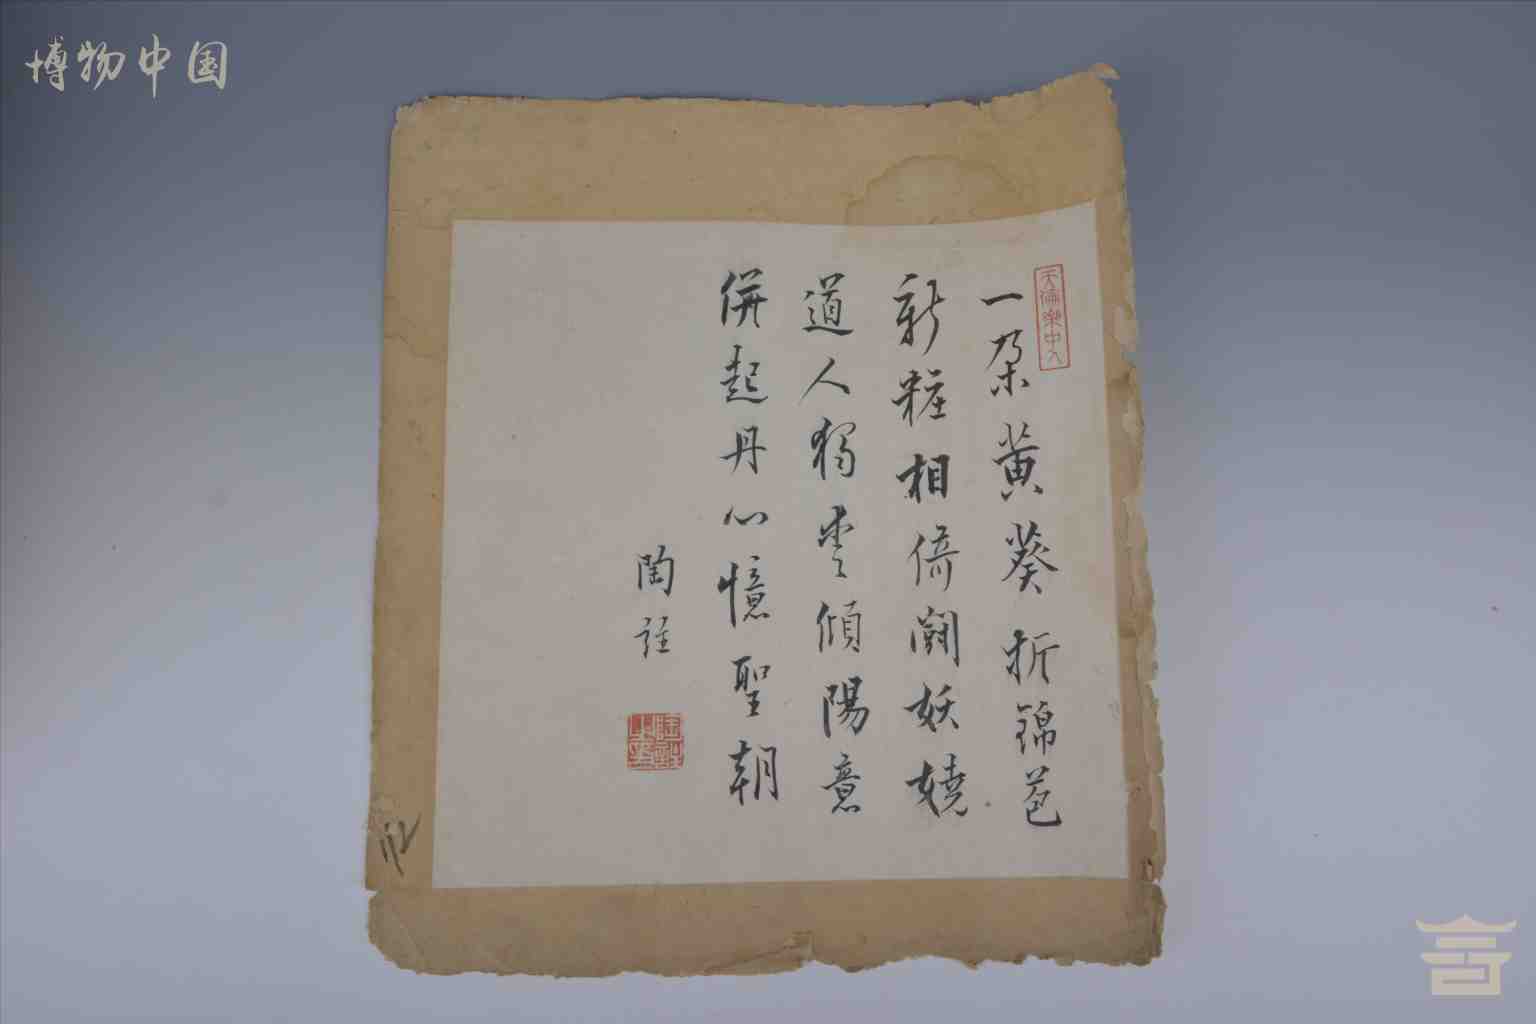 博物中国
天倫樂中人
一朶黄葵折錦苞
新粧相倚鬪妖嬈
道人獨愛傾陽意
併起丹心憶聖朝
陶詮